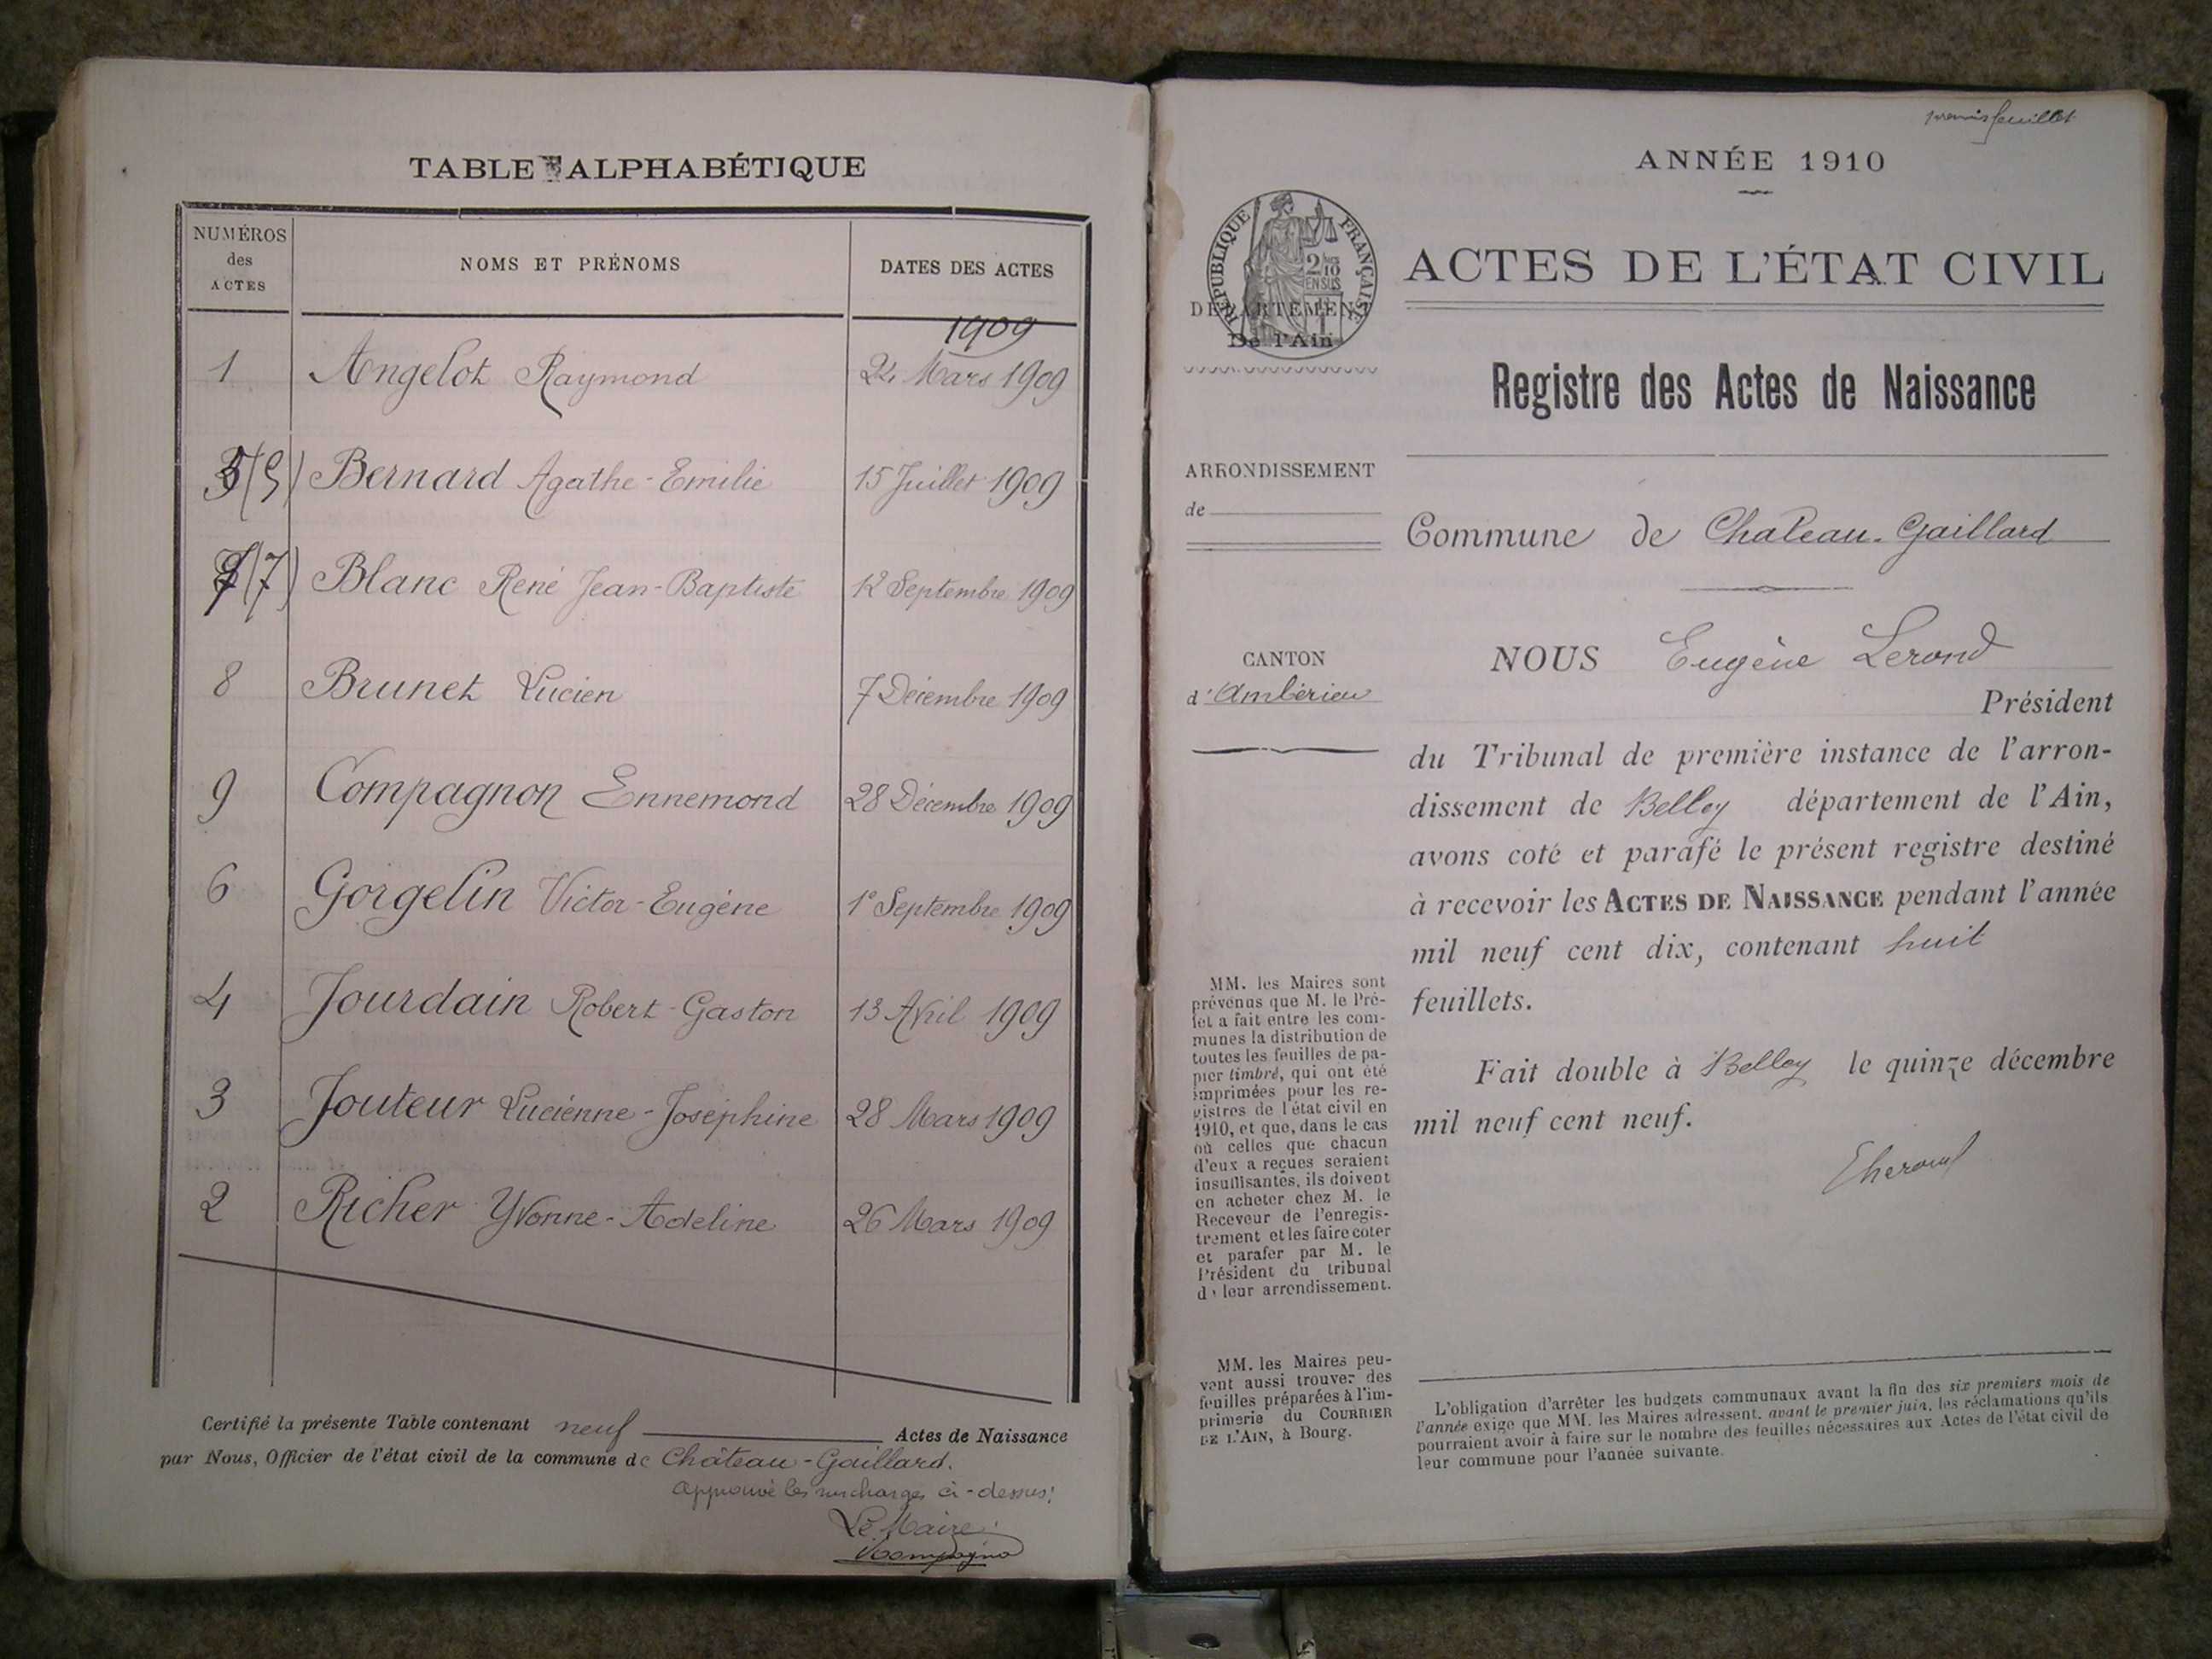 TABLE ALPHABÉTIQUE
NUMÉROS des ACTES
NOMS ET PRÉNOMS
DATES DES ACTES
1909
1 Angelot Raymond 24 Mars 1909
5 (5) Bernard Agathe-Emilie 15 Juillet 1909
7 (7) Blanc René Jean-Baptiste 12 Septembre 1909
8 Brunet Lucien 7 Décembre 1909
9 Compagnon Ennemond 28 Décembre 1909
6 Gorgelin Victor-Eugène 1° Septembre 1909
4 Jourdain Robert-Gaston 13 Avril 1909
3 Jouteur Lucienne-Joséphine 28 Mars 1909
2 Richer Yvonne-Adeline 26 Mars 1909
Certifié la présente Table contenant neuf Actes de Naissance
par Nous, Officier de l'état civil de la commune de Château-Gaillard.
approuvé les surcharges ci-dessus:
Le Maire:
premier feuillet
ANNÉE 1910
RÉPUBLIQUE FRANÇAISE
2/10 EN SUS
ACTES DE L'ÉTAT CIVIL
DÉPARTEMENT
De l'Ain
Registre des Actes de Naissance
ARRONDISSEMENT
de
Commune de Chateau-Gaillard
CANTON
d'Ambérieu
NOUS Eugène Lerond
Président
du Tribunal de première instance de l'arron-
dissement de Belley département de l'Ain,
avons coté et parafé le présent registre destiné
à recevoir les ACTES DE NAISSANCE pendant l'année
mil neuf cent dix, contenant huit
feuillets.
Fait double à Belley le quinze décembre
mil neuf cent neuf.
MM. les Maires sont
prévenus que M. le Pré-
fet a fait entre les com-
munes la distribution de
toutes les feuilles de pa-
pier timbré, qui ont été
imprimées pour les re-
gistres de l'état civil en
1910, et que, dans le cas
où celles que chacun
d'eux a reçues seraient
insuffisantes, ils doivent
en acheter chez M. le
Receveur de l'enregis-
trement et les faire coter
et parafer par M. le
Président du tribunal
de leur arrondissement.
MM. les Maires peu-
vent aussi trouver des
feuilles préparées à l'im-
primerie du COURRIER
DE L'AIN, à Bourg.
L'obligation d'arrêter les budgets communaux avant la fin des six premiers mois de
l'année exige que MM. les Maires adressent, avant le premier juin, les réclamations qu'ils
pourraient avoir à faire sur le nombre des feuilles nécessaires aux Actes de l'état civil de
leur commune pour l'année suivante.